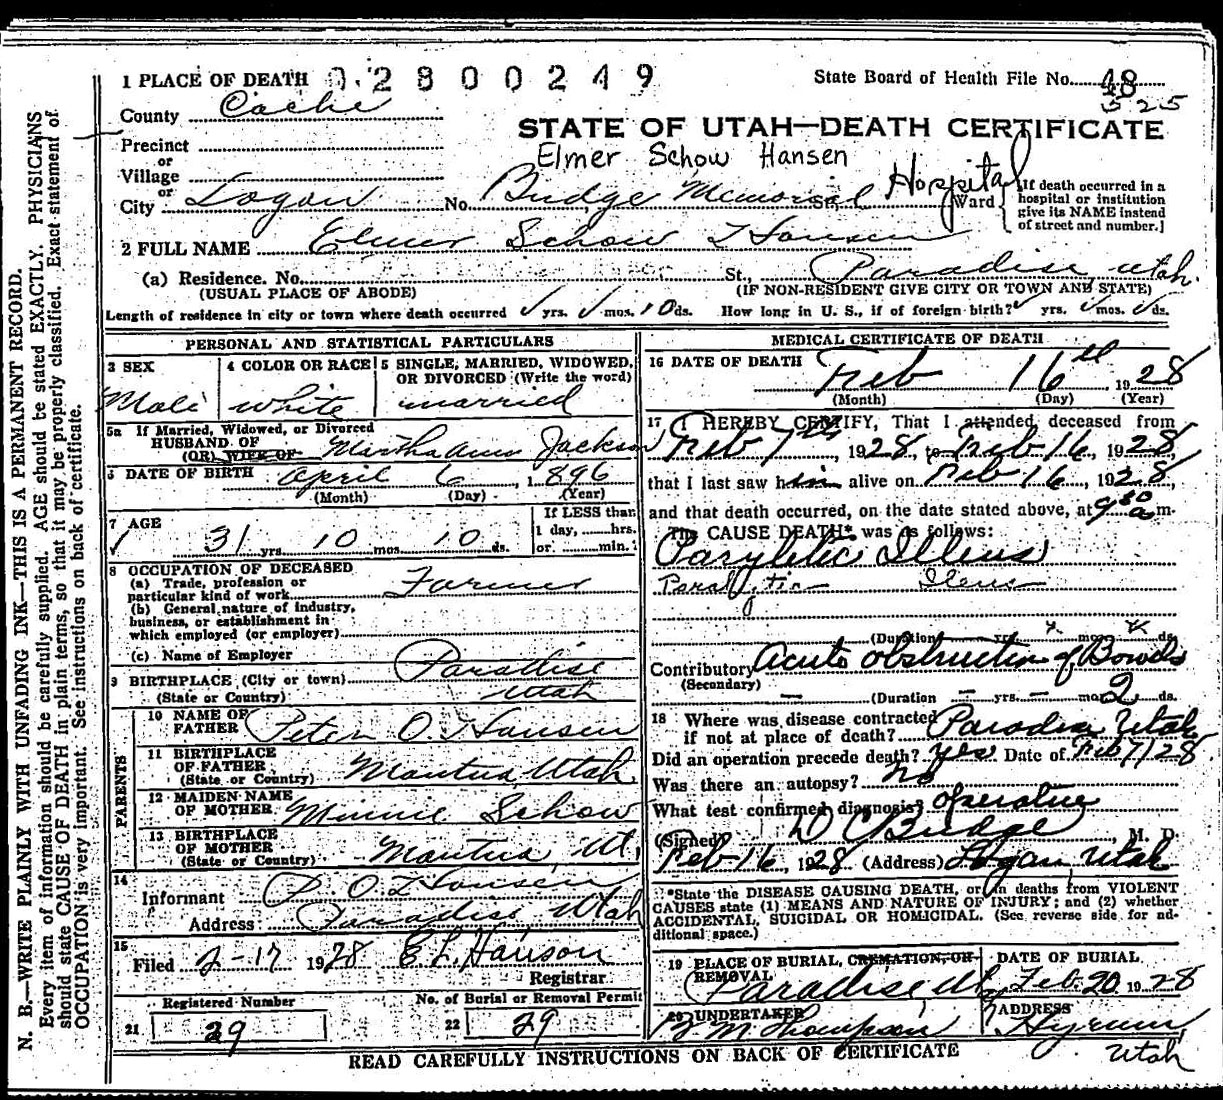 1 PLACE OF DEATH 02800249 State Board of Health File No. 48
525
County Cache
STATE OF UTAH—DEATH CERTIFICATE
Precinct
or
Elmer Schow Hansen
Village
or
City Logan No. Budge Memorial St., Hospital Ward
[If death occurred in a
hospital or institution
give its NAME instead
of street and number.]
2 FULL NAME Elmer Schow Hansen
(a) Residence. No. St., Paradise Utah.
(USUAL PLACE OF ABODE) (IF NON-RESIDENT GIVE CITY OR TOWN AND STATE)
Length of residence in city or town where death occurred ✓ yrs. ✓ mos. 10 ds. How long in U. S., if of foreign birth? ✓ yrs. ✓ mos. ✓ ds.
PERSONAL AND STATISTICAL PARTICULARS
3 SEX
Male
4 COLOR OR RACE
white
5 SINGLE, MARRIED, WIDOWED,
OR DIVORCED (Write the word)
married
5a If Married, Widowed, or Divorced
HUSBAND OF
(OR) WIFE OF Martha Ann Jackson
6 DATE OF BIRTH April 6, 1896
(Month) (Day) (Year)
7 AGE
✓ 31 yrs. 10 mos. 10 ds.
If LESS than
1 day, ......hrs.
or ......min.
8 OCCUPATION OF DECEASED
(a) Trade, profession or
particular kind of work Farmer
(b) General nature of industry,
business, or establishment in
which employed (or employer)
(c) Name of Employer
9 BIRTHPLACE (City or town) Paradise
(State or Country) Utah
PARENTS
10 NAME OF
FATHER Peter O. Hansen
11 BIRTHPLACE
OF FATHER
(State or Country) Mantua, Utah.
12 MAIDEN NAME
OF MOTHER Minnie Schow
13 BIRTHPLACE
OF MOTHER
(State or Country) Mantua, Ut.
14
Informant P. O. Hansen
Address Paradise Utah
15
Filed 2-17 1928 E L Hanson
Registrar
Registered Number
21 29
No. of Burial or Removal Permit
22 29
MEDICAL CERTIFICATE OF DEATH
16 DATE OF DEATH
Feb 16th, 1928
(Month) (Day) (Year)
17 I HEREBY CERTIFY, That I attended deceased from
Feb 7th, 1928, to Feb 16, 1928,
that I last saw him alive on Feb 16, 1928,
and that death occurred, on the date stated above, at 9 30 a m.
The CAUSE DEATH* was as follows:
Parylitic Illeus
Paralytic Ileus
(Duration yrs. mos. ds.
Contributory Acute obstruction of Bowels
(Secondary)
(Duration — yrs. — mos. 2 ds.
18 Where was disease contracted
if not at place of death? Paradise Utah
Did an operation precede death? yes Date of Feb 7/28
Was there an autopsy? no
What test confirmed diagnosis? operative
(Signed) D C Budge, M. D.
Feb 16, 1928 (Address) Logan, Utah
*State the DISEASE CAUSING DEATH, or in deaths from VIOLENT
CAUSES state (1) MEANS AND NATURE OF INJURY; and (2) whether
ACCIDENTAL, SUICIDAL OR HOMICIDAL. (See reverse side for ad-
ditional space.)
19 PLACE OF BURIAL, CREMATION, OR
REMOVAL
Paradise, Ut
DATE OF BURIAL
Feb. 20 1928
20 UNDERTAKER
M. Thompson
ADDRESS
Hyrum,
Utah
READ CAREFULLY INSTRUCTIONS ON BACK OF CERTIFICATE
N. B.—WRITE PLAINLY WITH UNFADING INK—THIS IS A PERMANENT RECORD.
Every item of information should be carefully supplied. AGE should be stated EXACTLY. PHYSICIANS
should state CAUSE OF DEATH in plain terms, so that it may be properly classified. Exact statement of
OCCUPATION is very important. See instructions on back of certificate.